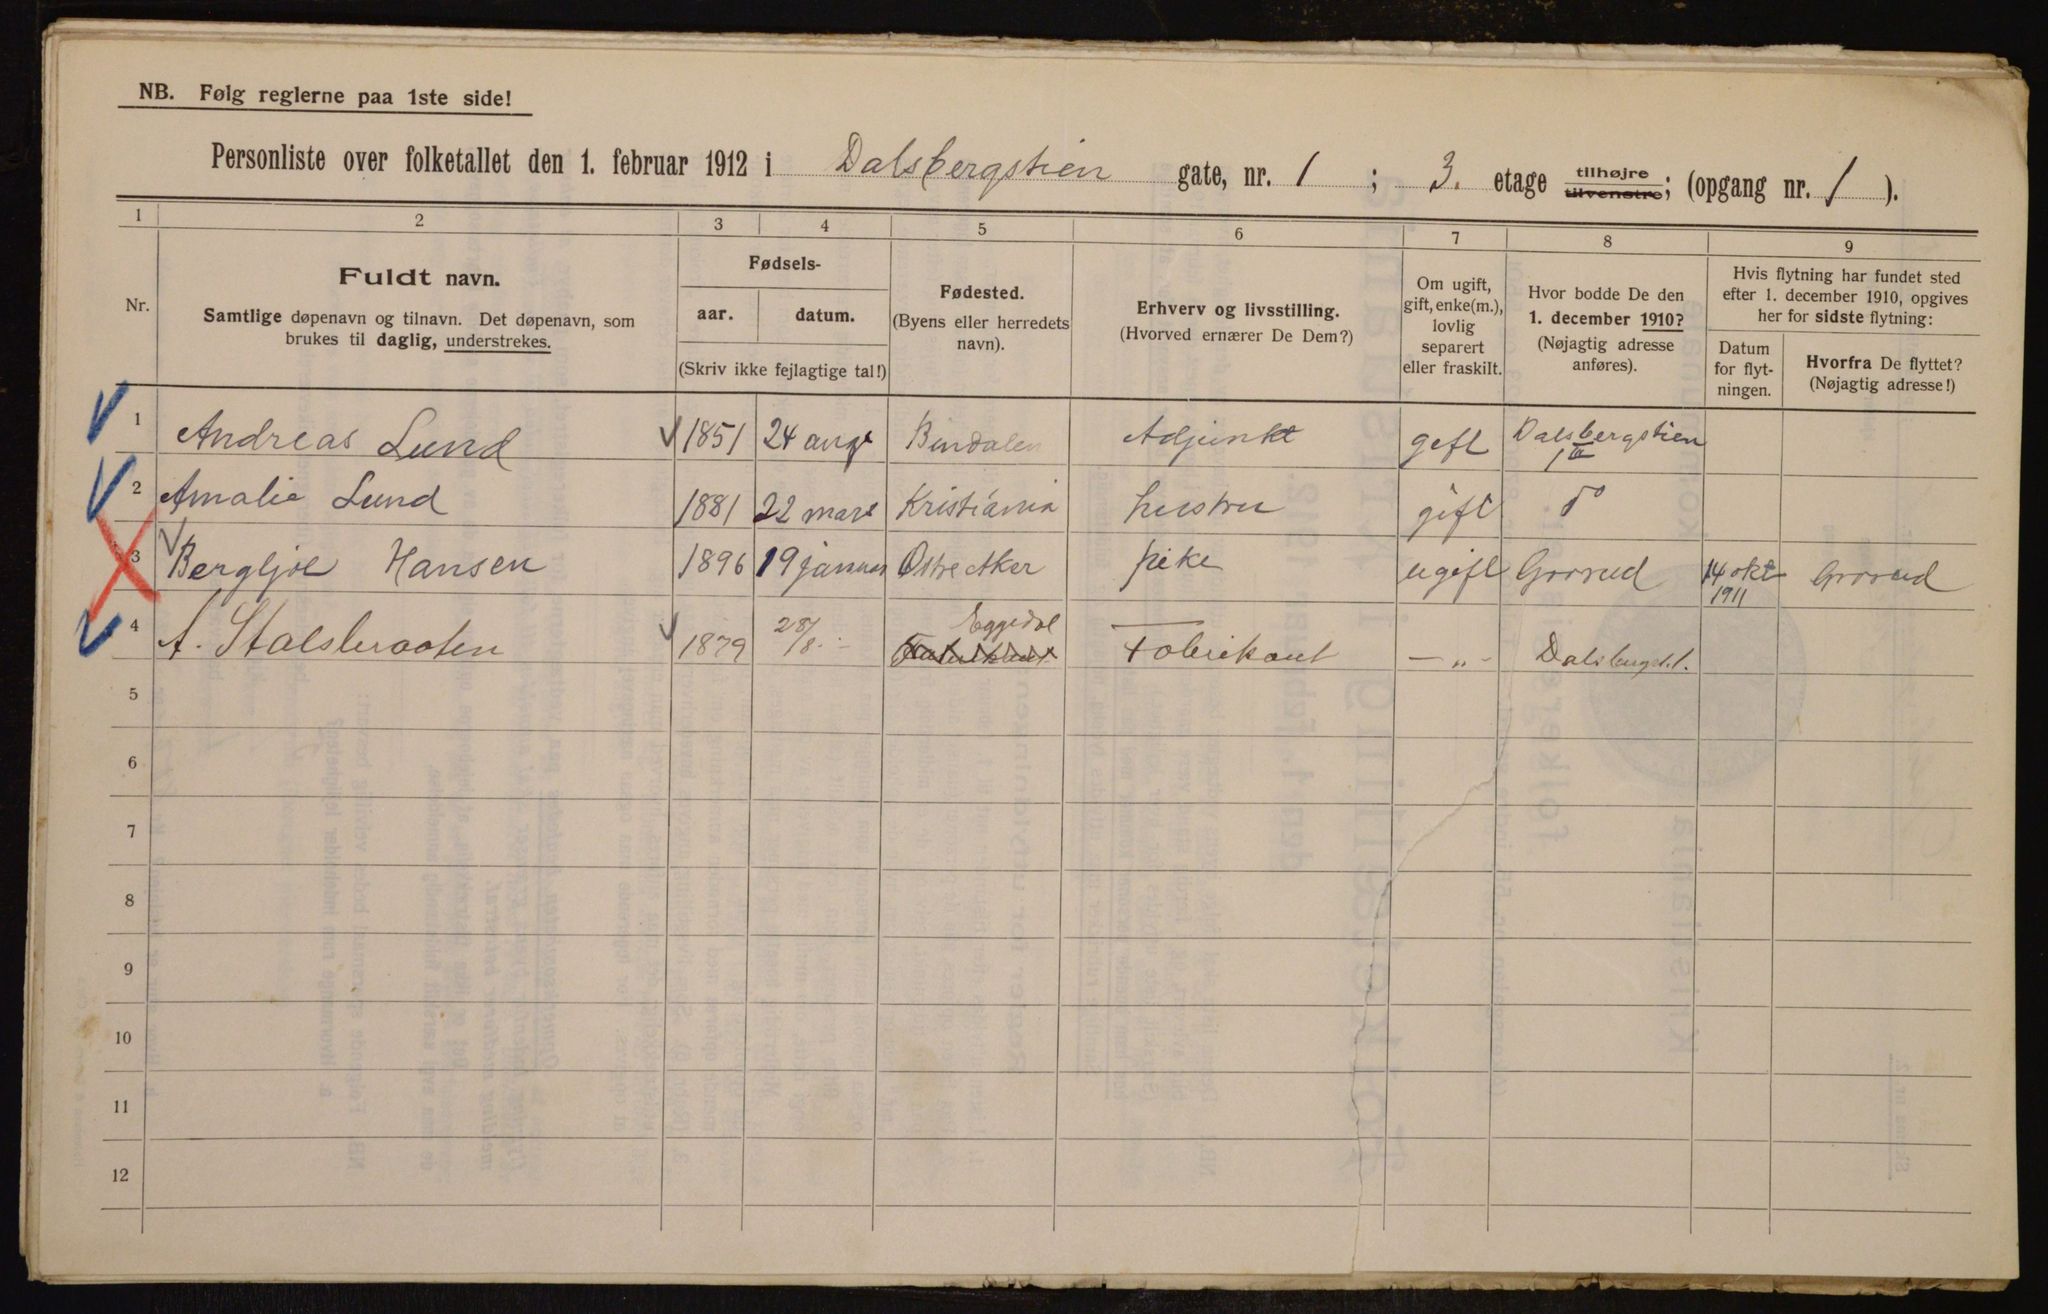 NB. Følg reglerne paa 1ste side!
Personliste over folketallet den 1. februar 1912 i Dalsbergstien gate, nr. 1 ; 3. etage tilhøjre tilvenstre; (opgang nr. 1 ).
1 2 3 4 5 6 7 8 9
Nr.
Fuldt navn.
Samtlige døpenavn og tilnavn. Det døpenavn, som
brukes til daglig, understrekes.
Fødsels-
aar. datum.
(Skriv ikke fejlagtige tal!)
Fødested.
(Byens eller herredets
navn).
Erhverv og livsstilling.
(Hvorved ernærer De Dem?)
Om ugift,
gift, enke(m.),
lovlig
separert
eller fraskilt.
Hvor bodde De den
1. december 1910?
(Nøjagtig adresse
anføres).
Hvis flytning har fundet sted
efter 1. december 1910, opgives
her for sidste flytning:
Datum
for flyt-
ningen.
Hvorfra De flyttet?
(Nøjagtig adresse!)
1 Andreas Lund 1851 24 aug Bindalen Adjunkt gift Dalsbergstien
1 III
2 Amalie Lund 1881 22 mars Kristiania hustru gift do
3 Bergljot Hansen 1896 19 januar Østre Aker pike ugift Grorud 14 okt Grorud
1911
4 A. Stalsbraaten 1879 28/8 Eggedal Fabrikant — „ — Dalsbergst. 1.
5
6
7
8
9
10
11
12